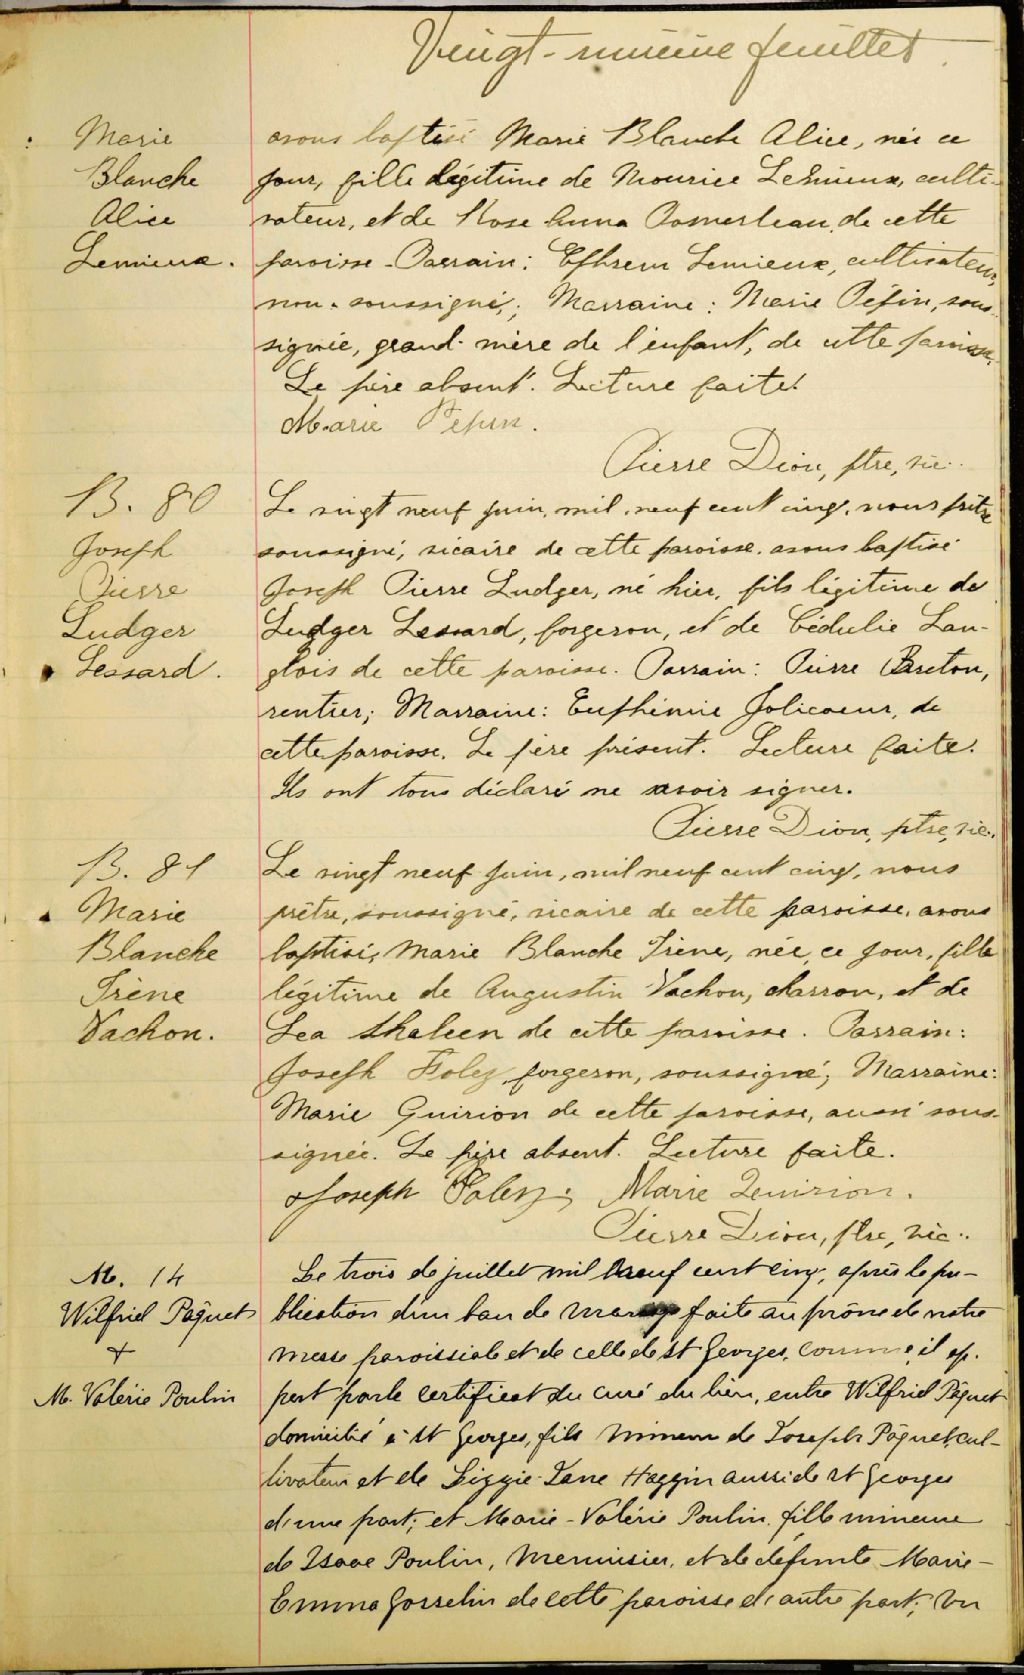 Vingt-neuvième feuillet
Marie
Blanche
Alice
Lemieux.
avons baptisé Marie Blanche Alice, née ce
jour, fille légitime de Maurice Lemieux, culti-
vateur, et de Rose Anna Pomerleau, de cette
paroisse. Parrain: Ephrem Lemieux, cultivateur,
non-soussigné; Marraine: Marie Pépin, sous-
signée, grand-mère de l'enfant, de cette paroisse.
Le père absent. Lecture faite.
Marie Pepin.
Pierre Dion, ptre, vic.
B. 80
Joseph
Pierre
Ludger
Lessard.
Le vingt neuf juin, mil neuf cent cinq, nous prêtre
soussigné, vicaire de cette paroisse, avons baptisé
Joseph Pierre Ludger, né hier, fils légitime de
Ludger Lessard, forgeron, et de Cédulie Lan-
glois de cette paroisse. Parrain: Pierre Breton,
rentier; Marraine: Euphémie Jolicoeur, de
cette paroisse. Le père présent. Lecture faite.
Ils ont tous déclaré ne savoir signer.
Pierre Dion, ptre, vic.
B. 81
Marie
Blanche
Irène
Vachon.
Le vingt neuf juin, mil neuf cent cinq, nous
prêtre, soussigné, vicaire de cette paroisse, avons
baptisé, Marie Blanche Irène, née, ce jour, fille
légitime de Augustin Vachon, charron, et de
Lea de cette paroisse. Parrain:
Joseph Foley forgeron, soussigné; Marraine:
Marie Quirion de cette paroisse, aussi sous-
signée. Le père absent. Lecture faite.
Joseph Foley; Marie Quirion.
Pierre Dion, ptre, vic.
M. 14
Wilfrid Pâquet
+
M. Valérie Poulin
Le trois de juillet mil neuf cent cinq, après la pu-
blication d'un ban de mariage faite au prône de notre
messe paroissiale et de celle de St Georges, comme il ap-
pert par le certificat du curé du lieu, entre Wilfrid Pâquet
domicilié à St Georges, fils mineur de Joseph Pâquet, cul-
tivateur et de Lizzie Jane Haggin aussi de St Georges
d'une part; et Marie-Valérie Poulin, fille mineure
de Isaae Poulin, menuisier, et de défunte Marie-
Emma Gosselin de cette paroisse d'autre part; vu